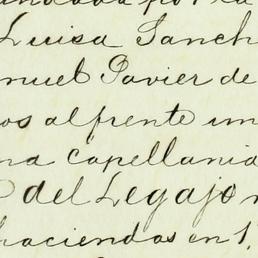 Luisa Sanch
nuel Pavier de
os al frente un
na capellania
del Legajo
haciendas en 1.